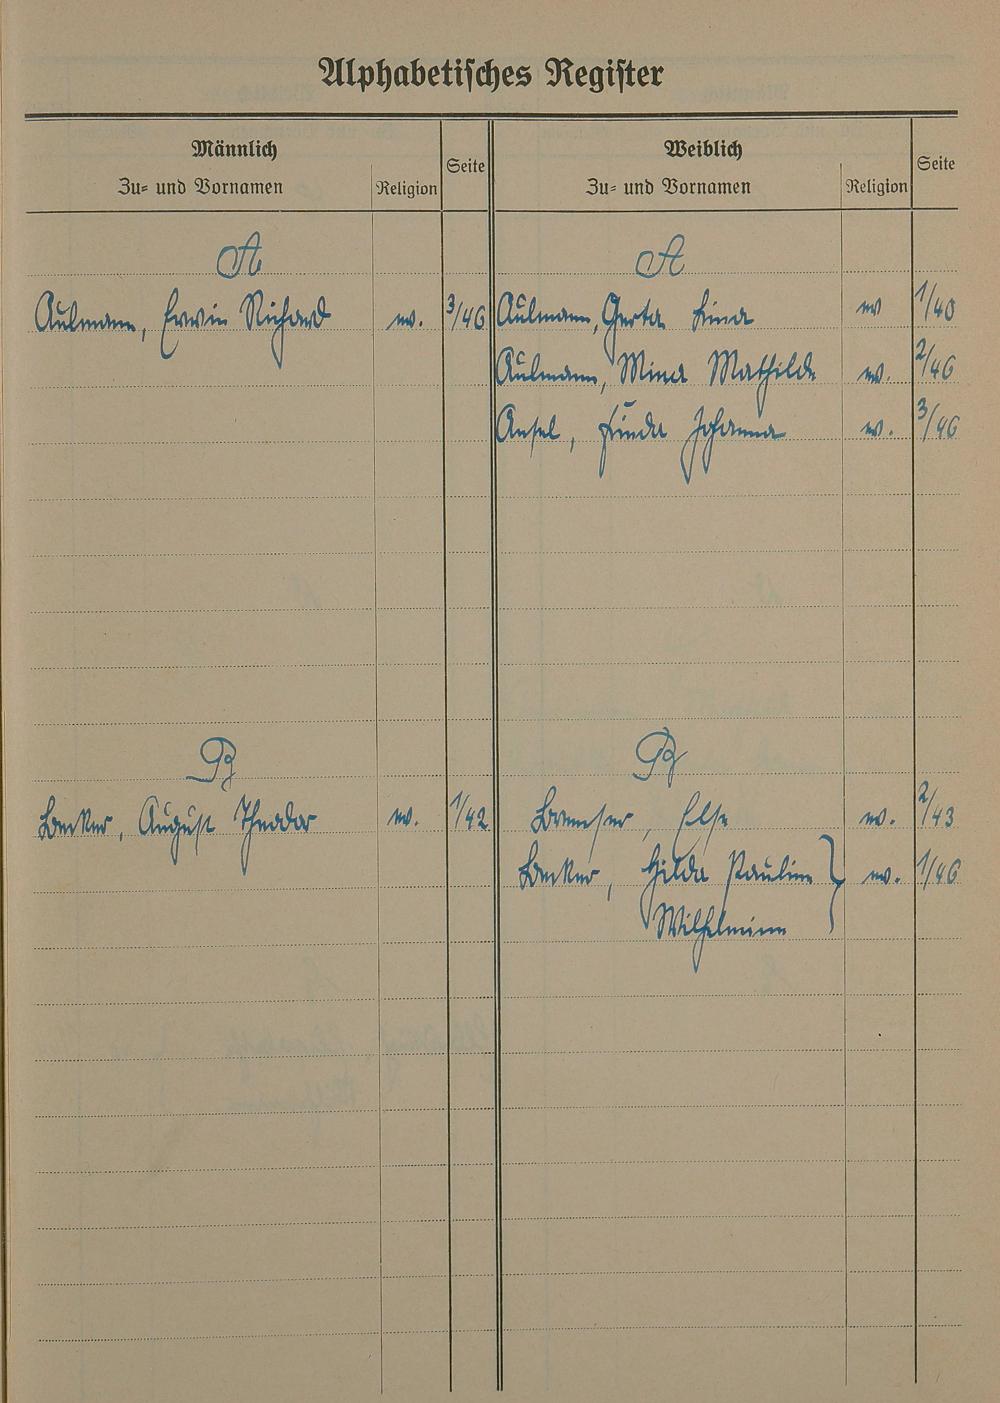 Alphabetisches Register
Männlich
Zu= und Vornamen
Religion
Seite
Weiblich
Zu= und Vornamen
Religion
Seite
A
Aulmann, Erwin Richard ev. 3/46
B
Becker, August Theodor ev. 1/42
A
Aulmann, Gerta Lina ev 1/40
Aulmann, Mina Mathilde ev. 2/46
Ansel, Frieda Johanna ev. 3/46
B
Bremser, Else ev. 2/43
Becker, Hilda Pauline ev. 1/46
Wilhelmine